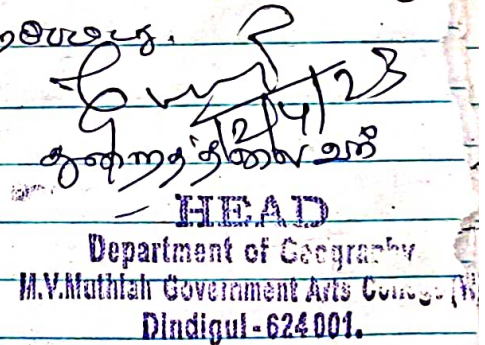 12/4/23
துறைத்தலைவர்
HEAD
Department of Geography
M.V.Muthiah Government Arts College (W)
Dindigul - 624 001.